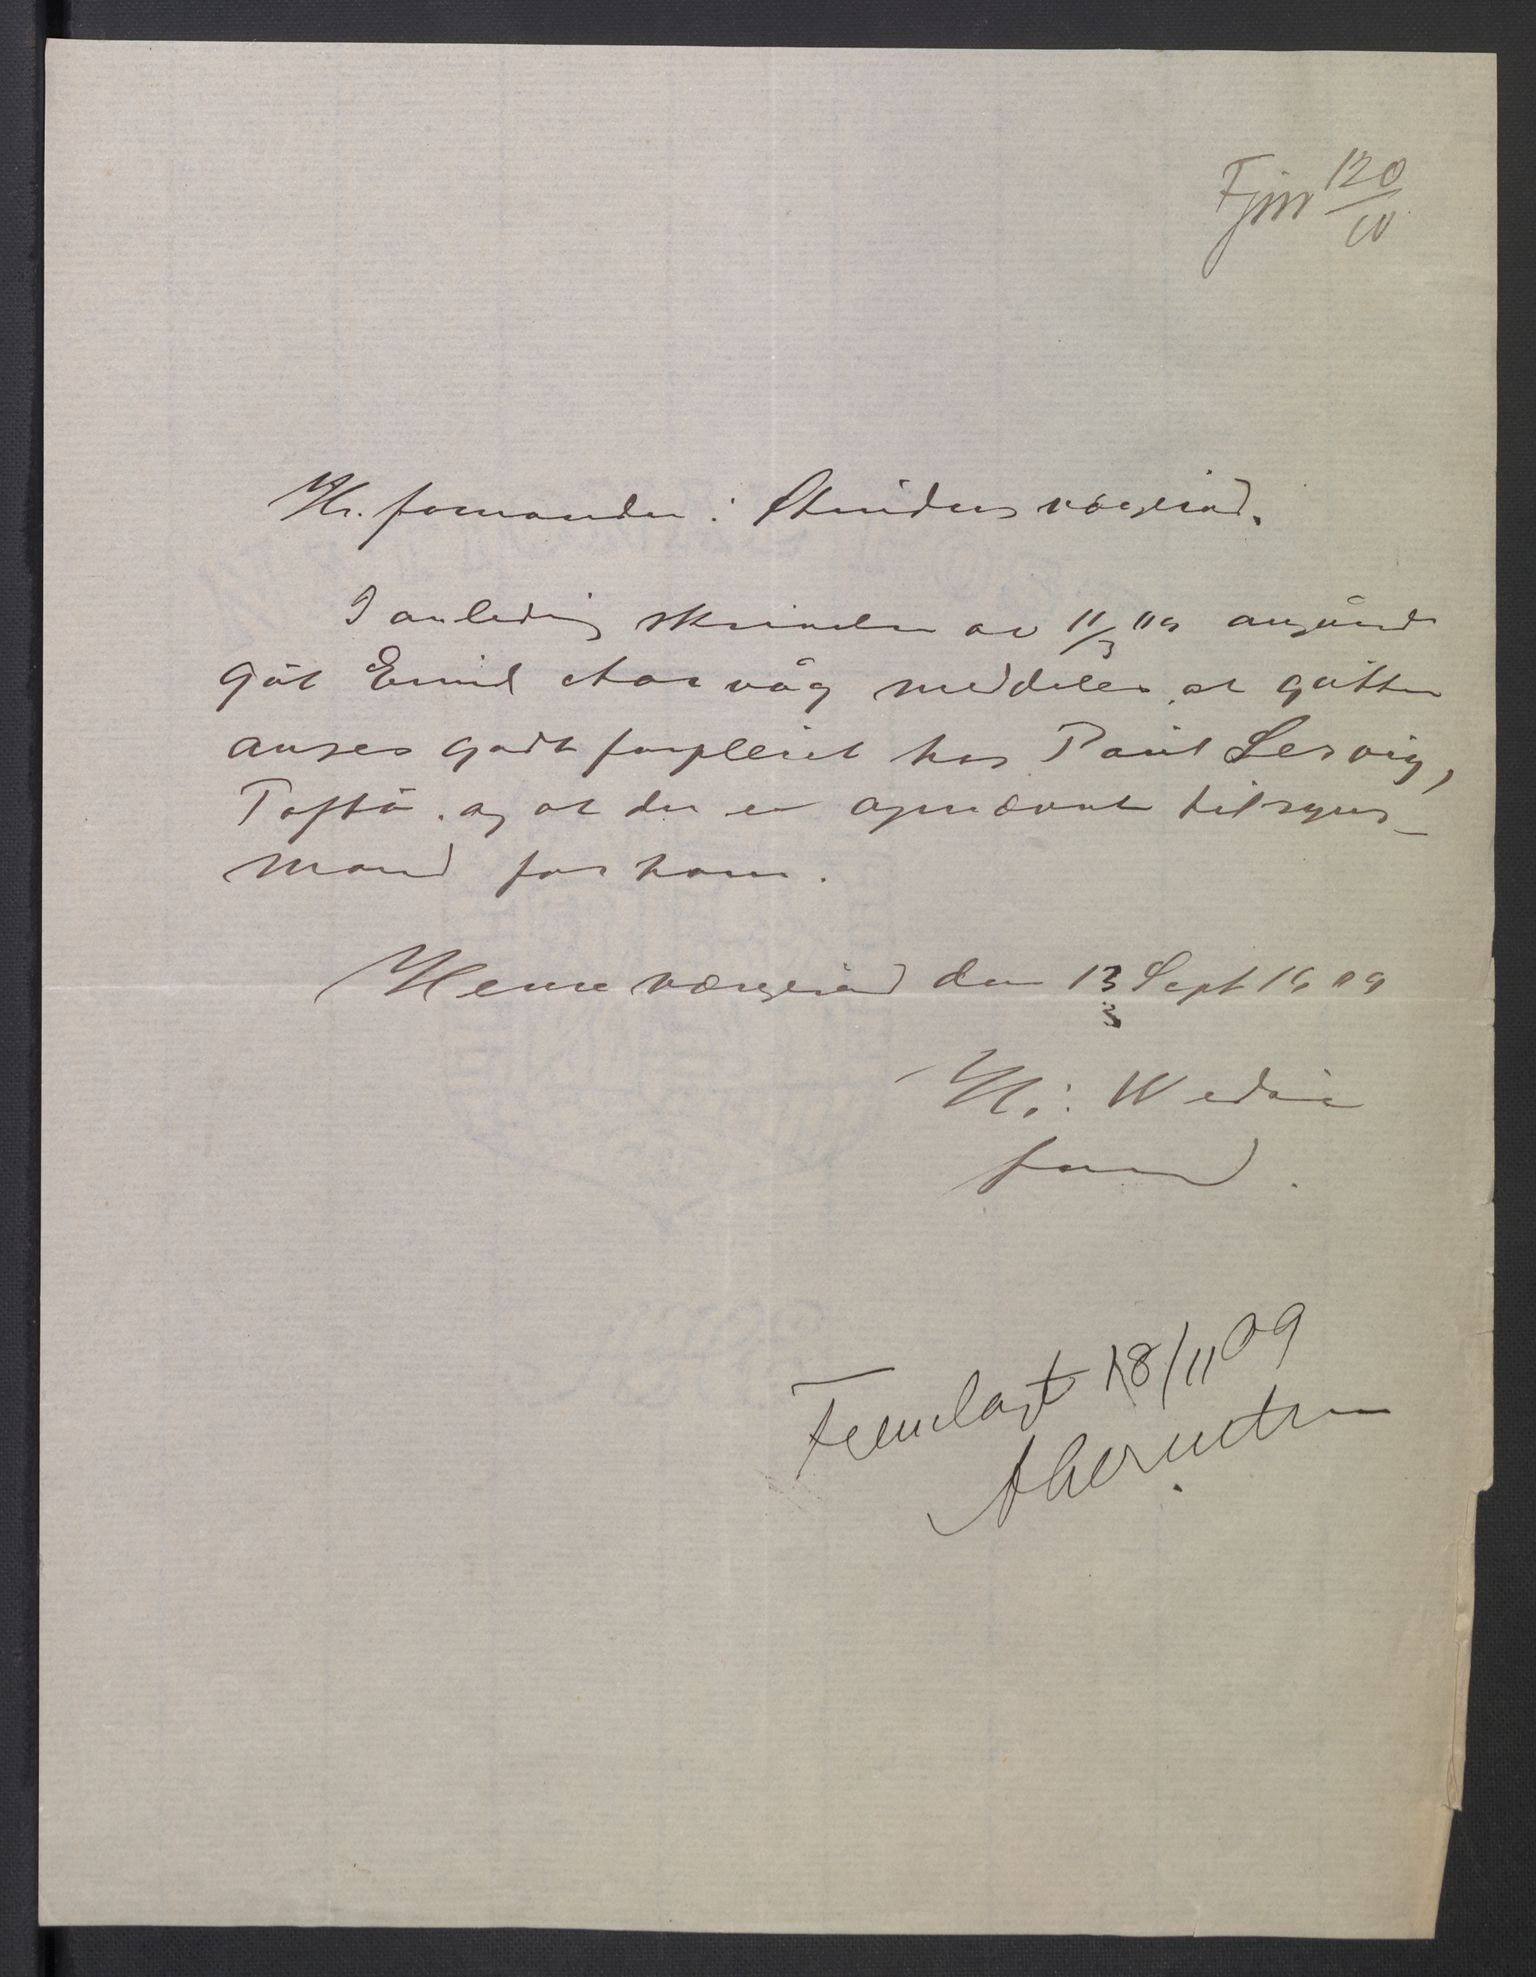 Fjnr 120/10
Hr. formanden i Strindens værgeraad.
I anledning skrivelse av 11/3 09 angående
gut Emil Aarvåg meddeles, at gutten
anses godt forpleiet hos Paul Lervig,
Toftø. og at der er opnævnt tilsyns-
mand for ham.
Hemne værgeraad den 13 Sept 1909
3
form
Fremlagt 18/11 09